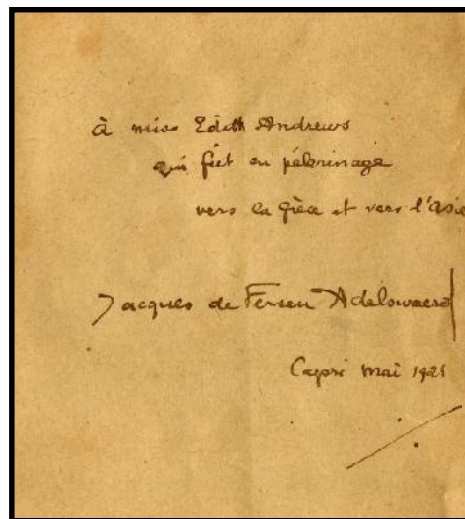 à miss Edith Andrews
qui fut en pélerinage
vers la Grèce et vers l'Asie
Jacques de Fersen Adelswaerd
Capri mai 1921